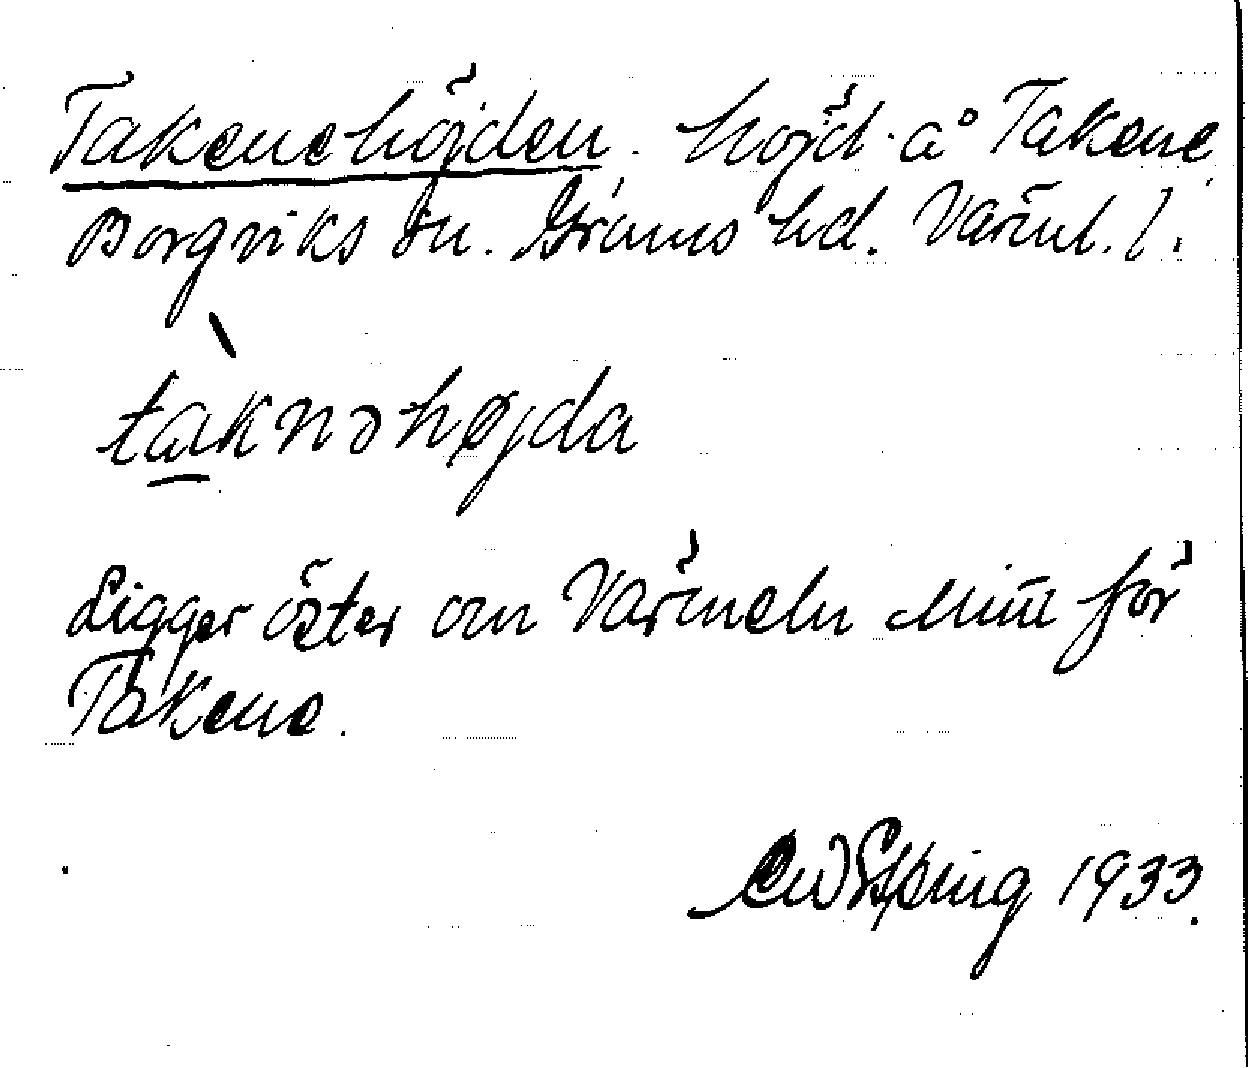 Takenehöjden. höjd å Takene
Borgviks sn. Grums hd. Värml. l.
tàknəhøjda
Ligger öster om Värmeln mitt för
Takene.
1933.